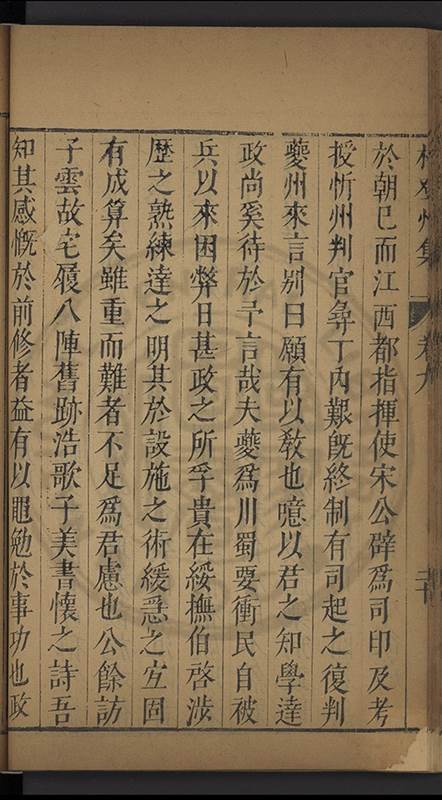 於朝已而江西都指揮使宋公辟爲司印及考
授忻州判官尋丁內艱旣終制有司起之復判
夔州來言别曰願有以敎也噫以君之知學達
政尚奚待於予言哉夫夔爲川蜀要衝民自被
兵以來困弊日甚政之所乎貴在綏撫伯啓涉
歷之熟練達之明其於設施之術緩急之宜固
有成算矣雖重而難者不足爲君慮也公餘訪
子雲故宅履八陣舊跡浩歌子美書懷之詩吾
知其感慨於前修者益有以黽勉於事功也政